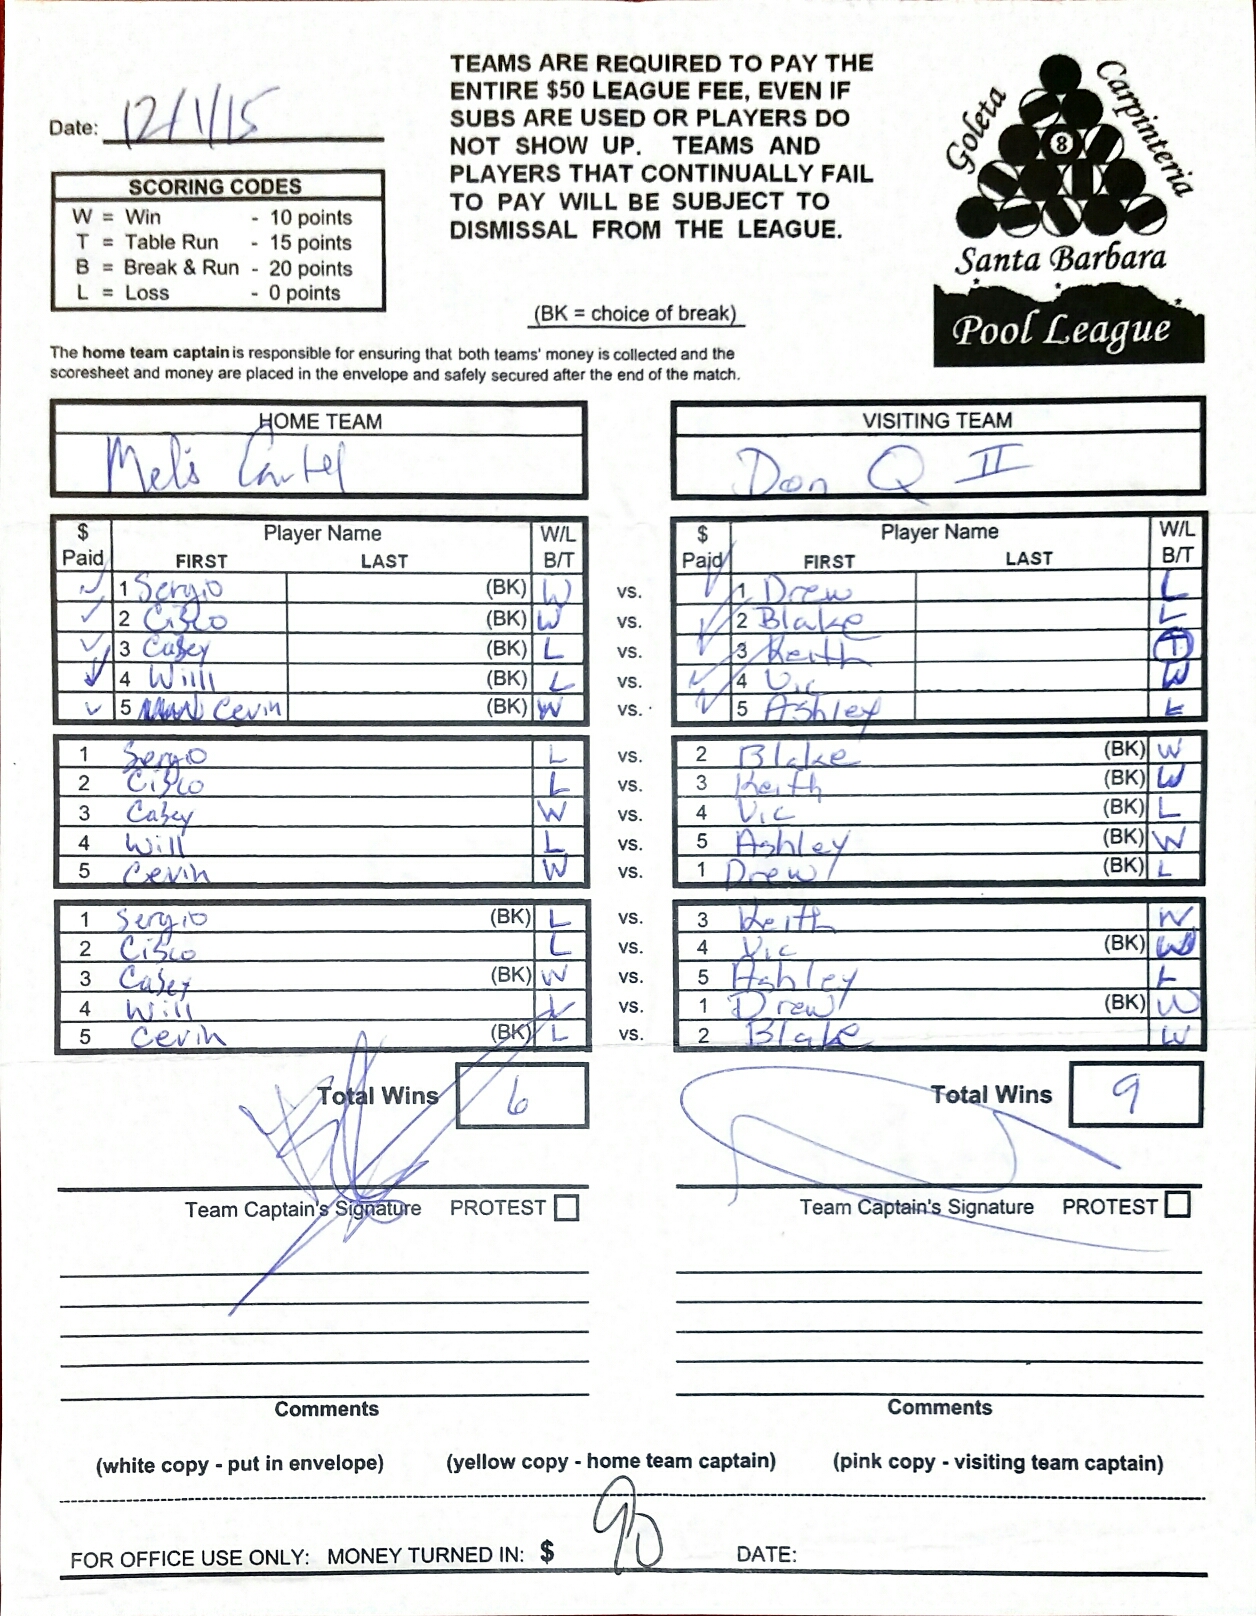 Date: 12/1/15
SCORING CODES
W = Win - 10 points
T = Table Run - 15 points
B = Break & Run - 20 points
L = Loss - 0 points
TEAMS ARE REQUIRED TO PAY THE
ENTIRE $50 LEAGUE FEE, EVEN IF
SUBS ARE USED OR PLAYERS DO
NOT SHOW UP. TEAMS AND
PLAYERS THAT CONTINUALLY FAIL
TO PAY WILL BE SUBJECT TO
DISMISSAL FROM THE LEAGUE.
(BK = choice of break)
Goleta
Carpinteria
8
Santa Barbara
Pool League
The home team captain is responsible for ensuring that both teams' money is collected and the
scoresheet and money are placed in the envelope and safely secured after the end of the match.
HOME TEAM
Mel's Cartel
VISITING TEAM
Don Q II
$ Player Name W/L $ Player Name W/L
Paid FIRST LAST B/T Paid FIRST LAST B/T
1 Sergio (BK) W vs. 1 Drew L
2 Cisco (BK) W vs. 2 Blake L
3 Casey (BK) L vs. 3 Keith T
4 Willl (BK) L vs. 4 Vic W
5 Cevin (BK) W vs. 5 Ashley L
1 Sergio L vs. 2 Blake (BK) W
2 Cisco L vs. 3 Keith (BK) W
3 Casey W vs. 4 Vic (BK) L
4 Will L vs. 5 Ashley (BK) W
5 Cevin W vs. 1 Drew (BK) L
1 Sergio (BK) L vs. 3 Keith W
2 Cisco L vs. 4 Vic (BK) W
3 Casey (BK) W vs. 5 Ashley L
4 Will L vs. 1 Drew (BK) W
5 Cevin (BK) L vs. 2 Blake W
Total Wins 6 Total Wins 9
Team Captain's Signature PROTEST Team Captain's Signature PROTEST
Comments Comments
(white copy - put in envelope) (yellow copy - home team captain) (pink copy - visiting team captain)
FOR OFFICE USE ONLY: MONEY TURNED IN: $ 90 DATE: